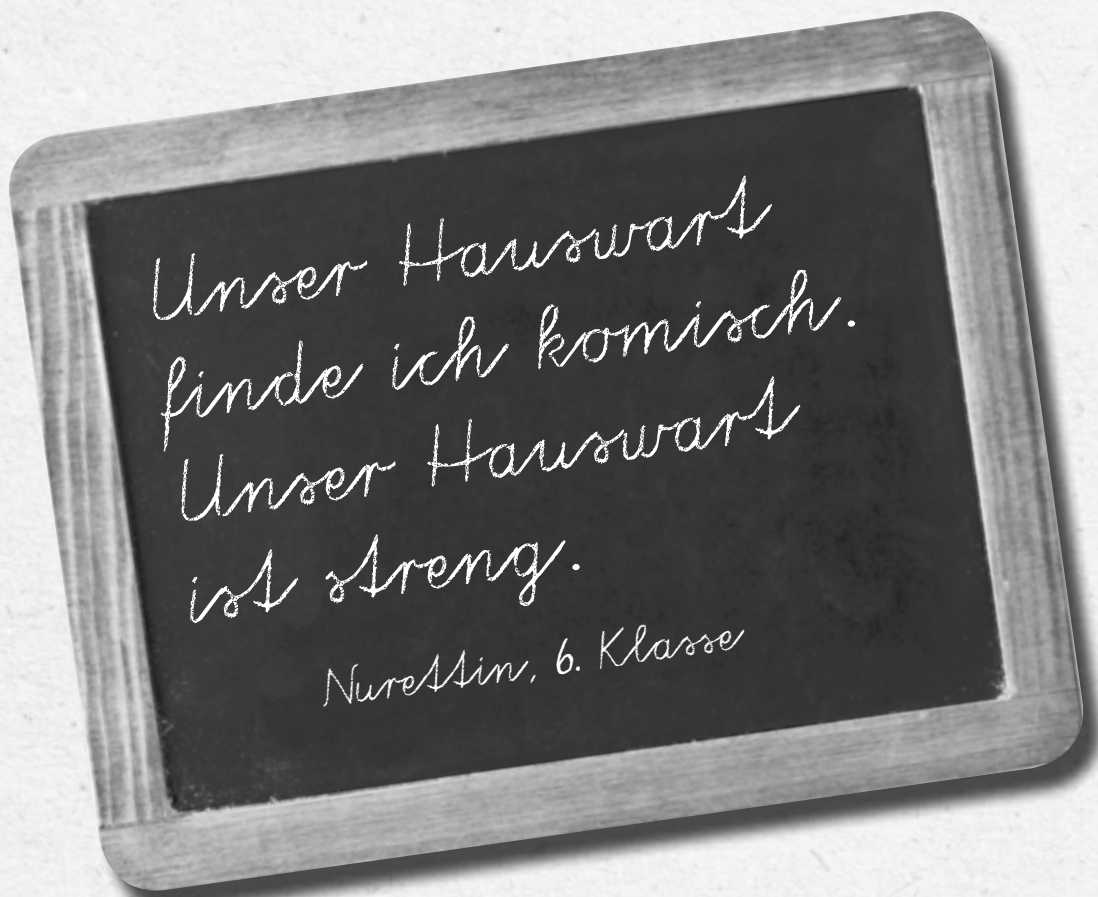 Unser Hauswart
finde ich komisch.
Unser Hauswart
ist streng.
Nurettin, 6. Klasse